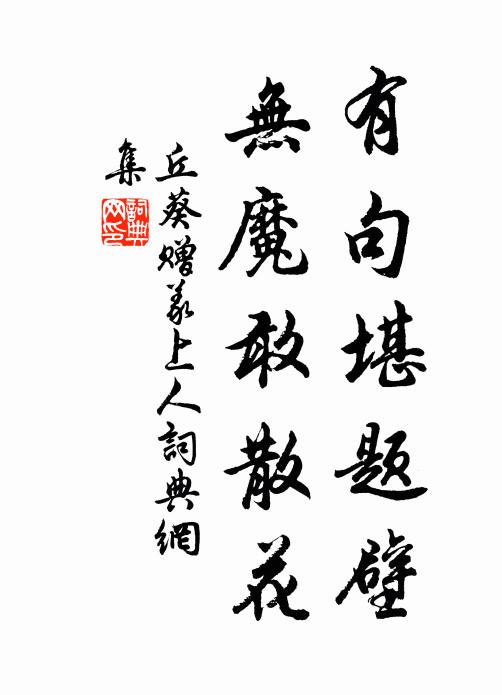 有句堪題壁
無魔敢散花
丘葵贈義上人詞典網
集
詞典
网印